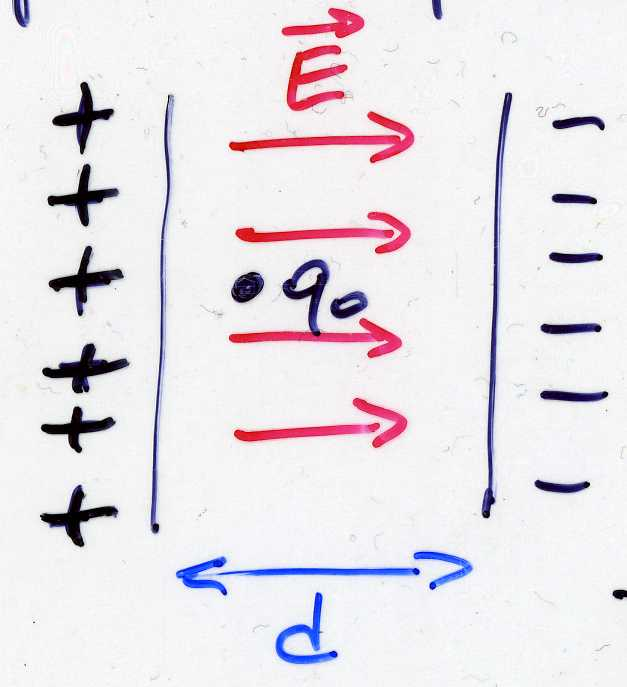 E⃗
+ −
+ −
+ −
q₀
+ −
+ −
+ −
d